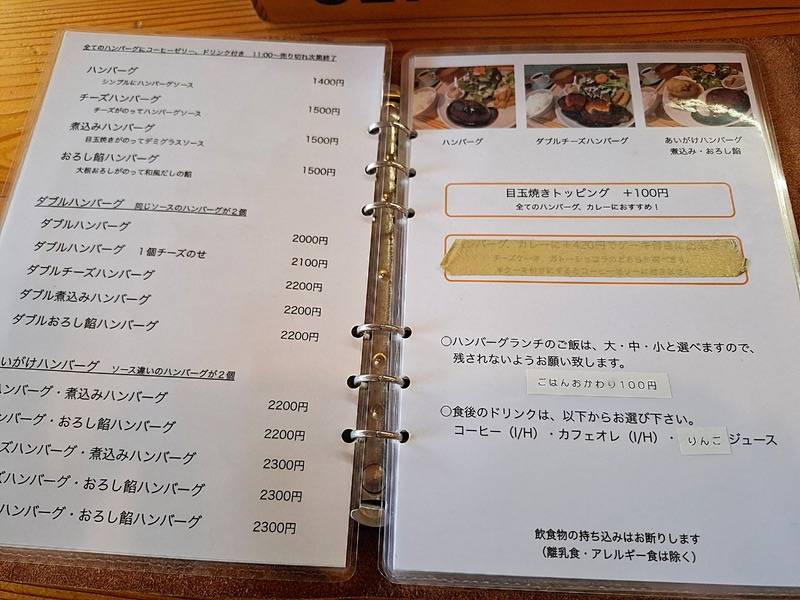 全てのハンバーグにコーヒーゼリー、ドリンク付き　11:00〜売り切れ次第終了
ハンバーグ　1400円
シンプルにハンバーグソース
チーズハンバーグ　1500円
チーズがのってハンバーグソース
煮込みハンバーグ　1500円
目玉焼きがのってデミグラスソース
おろし餡ハンバーグ　1500円
大根おろしがのって和風だしの餡
ダブルハンバーグ　同じソースのハンバーグが２個
ダブルハンバーグ　2000円
ダブルハンバーグ　１個チーズのせ　2100円
ダブルチーズハンバーグ　2200円
ダブル煮込みハンバーグ　2200円
ダブルおろし餡ハンバーグ　2200円
いがけハンバーグ　ソース違いのハンバーグが２個
ンバーグ・煮込みハンバーグ　2200円
ンバーグ・おろし餡ハンバーグ　2200円
ズハンバーグ・煮込みハンバーグ　2300円
ズハンバーグ・おろし餡ハンバーグ　2300円
ハンバーグ・おろし餡ハンバーグ　2300円
ハンバーグ
ダブルチーズハンバーグ
あいがけハンバーグ
煮込み・おろし餡
目玉焼きトッピング　＋100円
全てのハンバーグ、カレーにおすすめ！
○ハンバーグランチのご飯は、大・中・小と選べますので、
残されないようお願い致します。
ごはんおかわり１００円
○食後のドリンクは、以下からお選び下さい。
コーヒー（I/H）・カフェオレ（I/H）・りんごジュース
飲食物の持ち込みはお断りします
（離乳食・アレルギー食は除く）